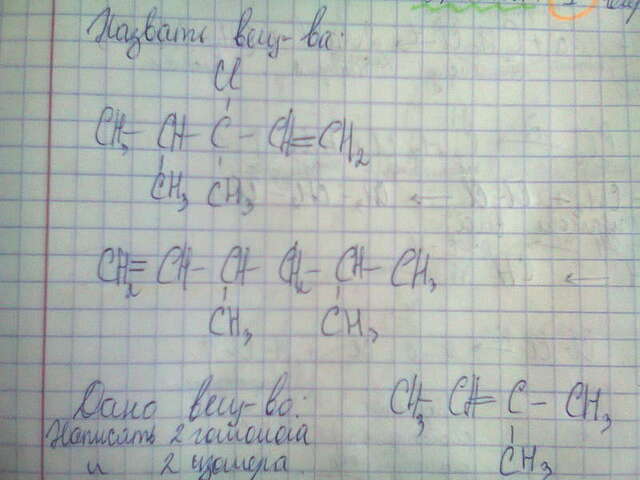 Назвать вещ-ва:
Cl
CH3 - CH - C - CH = CH2
CH3 CH3
CH2 = CH - CH - CH2 - CH - CH3
CH3 CH3
Дано вещ-во: CH3 CH = C - CH3
Написать 2 гомолога CH3
и 2 изомера